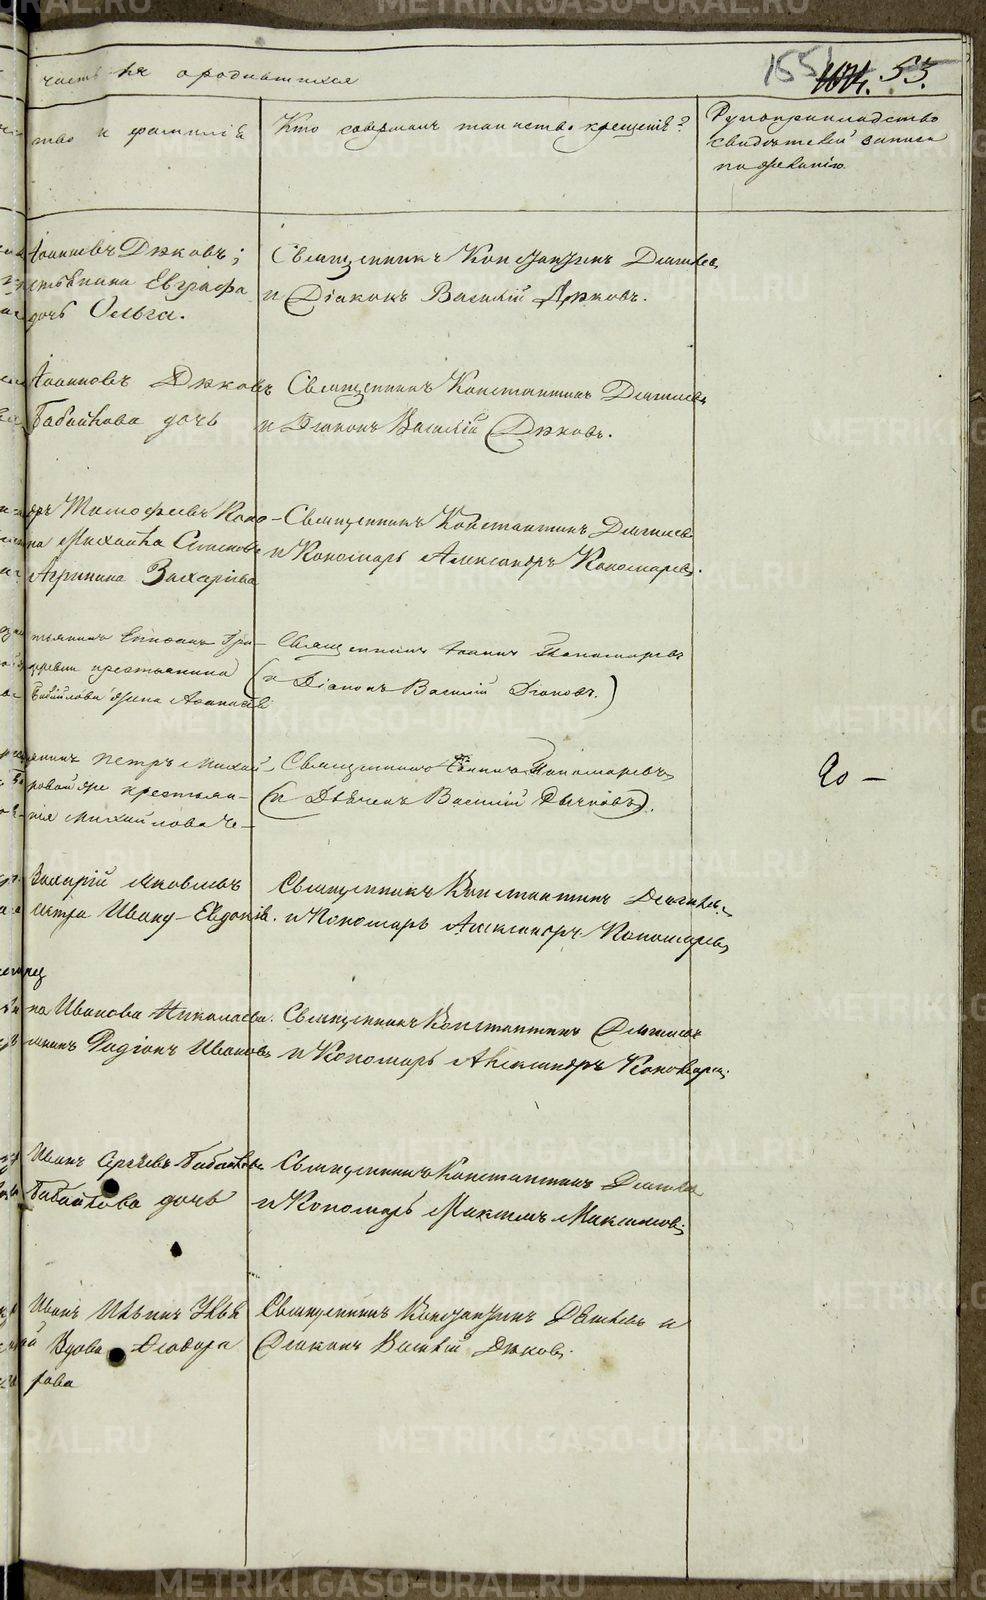 часть 1я о родившихся
155 55.
тво и фамилiя
Кто совершалъ таинство крещенiя?
Рукоприкладство
свидѣтелей записи
по желанiю.
Iоанновъ Дьяковъ;
Евграфа
дочь Ольга.
Священникъ Константинъ Дягилевъ
и Дiаконъ Василiй Дьяковъ.
Iоанновъ Дьяковъ
Бабайкова дочь
Священникъ Константинъ Дягилевъ
и Дiаконъ Василiй Дьяковъ.
Тимофеевъ Коно-
на Михаила Семенова
Агрипина Захарiева
Священникъ Константинъ Дягилевъ
и Пономарь Александръ Пономаревъ.
Гри-
крестьянина
Ирина Афанасiев
Священникъ Iоаннъ Пономаревъ
(и Дiаконъ Василiй Дьяковъ.)
Петръ Михай-
крестьян-
Михайлова Че-
Священникъ Iоаннъ Пономаревъ
(и Дьячекъ Василiй).
20 —
Захарiй Яковлевъ
Ивану Евдокiя.
Священникъ Константинъ Дягилевъ
и Пономарь Александръ Пономаревъ
на Иванова Николаева.
Радiонъ Ивановъ
Священникъ Константинъ Дягилевъ
и Пономарь Александръ Пономарев.
Иванъ Сергѣевъ Бабайкова
Бабайкова дочь
Священникъ Константинъ Дягилев
и Пономарь Максимъ Максимов.
Иванъ Ильинъ
Вдова Феодора
рова
Священникъ Константинъ Дягилевъ и
Дiаконъ Василiй Дьяков.
METRIKI.GASO-URAL.RU